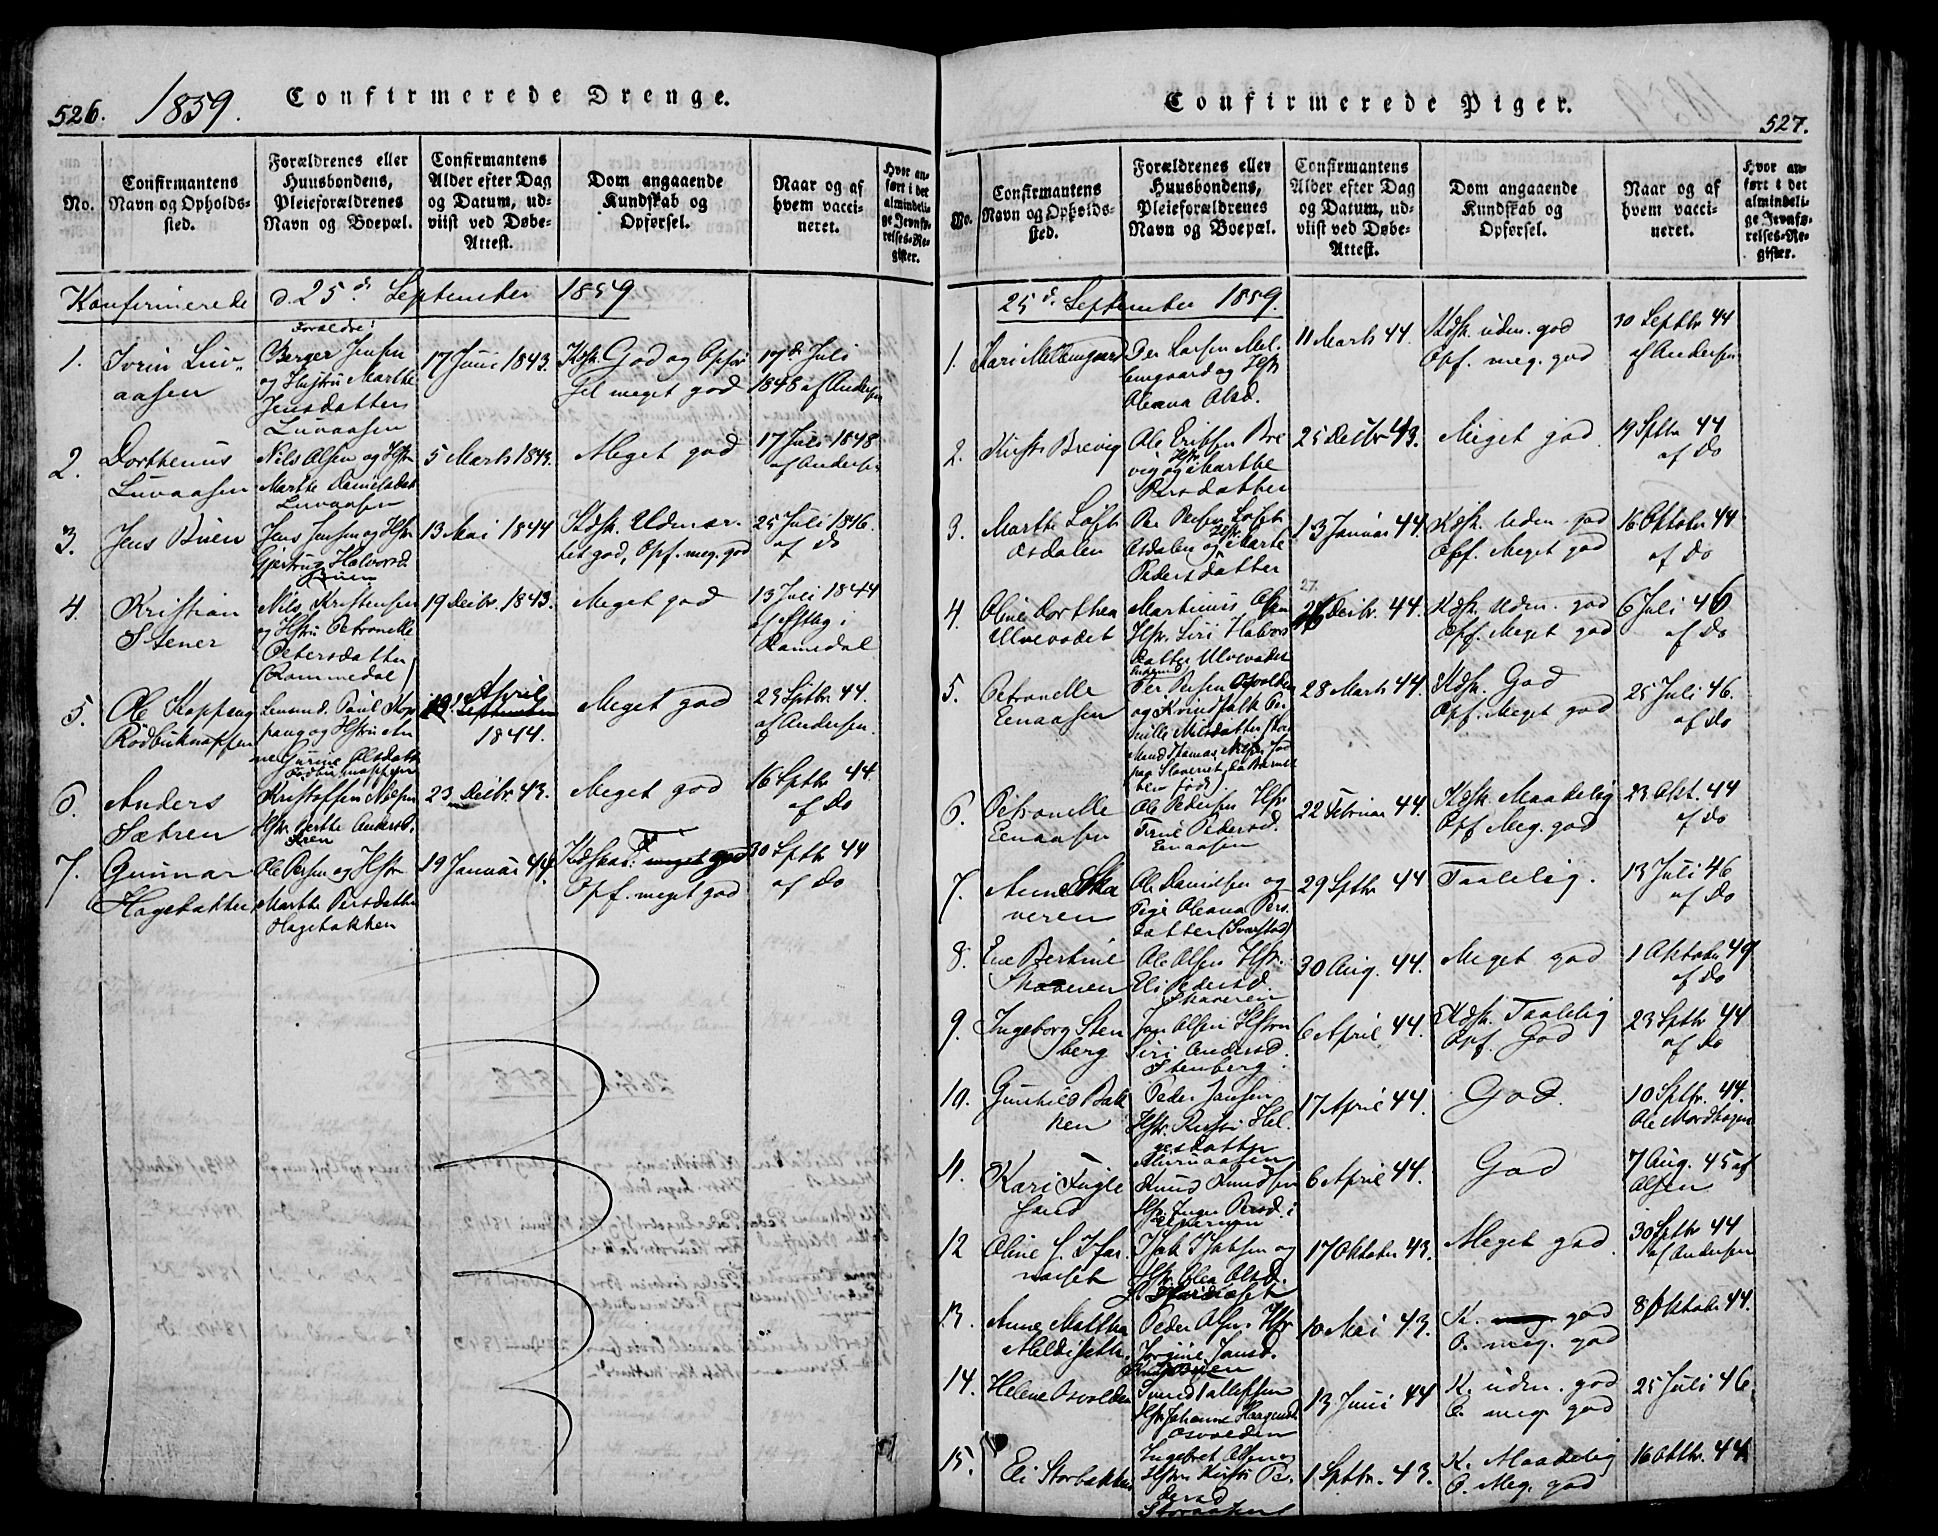 526.
1859.
Confirmerede Drenge.
No.
Confirmantens
Navn og Opholds-
sted.
Forældrenes eller
Huusbondens,
Pleieforældrenes
Navn og Boepæl.
Confirmantens
Alder efter Dag
og Datum, ud-
viist ved Døbe-
Attest.
Dom angaaende
Kundskab og
Opførsel.
Naar og af
hvem vacci-
neret.
Hvor an-
ført i det
almindeli-
ge Jevnfø-
relses-Re-
gister.
Konfirmerede d. 25d. September 1859
1.
aasen
Forældre:
Berger Jensen
og Hustru Marthe
Jensdatter
Luvaasen
17 Juni 1843.
Kdsk. God og Opfør
sel meget god
17de Juli
1848 af Andersen
2.
Dorthenus
Luvaasen
Nils Olsen og Hstr.
Marthe Danielsdat
Luvaasen
5 Marts 1843.
Meget god
17 Juli 1848
af Andersen
3.
Jens Buen
Jens Jensen og Hstr
Gjertrud Halvorsd.
Buen
13 Mai 1844
Kdsk. Udmær-
ket god, Opf. meg. god
25 Juli 1846.
af Do
4.
Kristian
Stener
Nils Kristensen
og Hstru Petronelle
Petersdatter
(Rammedal)
19 Decbr. 1843.
Meget god
13 Juli 1844
Ramedal
5.
Ole Koppang
Rødbuknappen
Paul Kop
pang og Hstru An
ne Gurine Olsdatt
19. April
September
1844.
Meget god
23 Sptbr 44.
af Andersen.
6.
Anders
Sætren
Kristoffen Nilsen
Hstr. Berthe Andersd.
23 Decbr. 43.
Meget god
16 Sptbr 44
af Do
7.
Gunnar
Hagebakken
Ole Persen og Hstru
Marthe Persdatter
Hagebakken
19 Januar 44.
meget god
Opf. meget god
30 Sptbr 44
af Do
Confirmerede Piger.
527.
No.
Confirmantens
Navn og Opholds-
sted.
Forældrenes eller
Huusbondens,
Pleieforældrenes
Navn og Boepæl.
Confirmantens
Alder efter Dag
og Datum, ud-
viist ved Døbe-
Attest.
Dom angaaende
Kundskab og
Opførsel.
Naar og af
hvem vacci-
neret.
Hvor an-
ført i det
almindeli-
ge Jevnfø-
relses-Re-
gister.
25d. September 1859.
1.
Kari Mellemgaard
Per Larsen Mel-
lemgaard og Hstr
Oleana Olsd.
11 Marts 44.
Kdsk. udm. god
Opf. meg. god
30 Septbr 44
af Andersen
2.
Kirsti Brevig
Ole Eriksen Bre
vig og Hstr. Marthe
Persdatter
25 Decbr 43.
Meget god
19 Sptbr 44
af Do
3.
Marthe Løft
åsdalen
Per Persen Løft
åsdalen og Hstr. Marte
Pedersdatter
13 Januar 44.
Kdsk. Udm. god
Opf. Meget god
16 Oktober 44
af Do
4.
Oline Dorthea
Ulvevadet
Martinus Olsen
Hstr. Siri Halvors
datter Ulvevadet
27
Decbr. 44.
Kdsk. Udm. god
Opf. Meget god
6 Juli 46
af Do
5.
Petronelle
Eenaasen
Per Persen Osvolden
og Kvindfolk Per
nille Nilsdatter
28 Marts 44.
Kdsk. God
Opf. Meget god
25 Juli 46.
af Do
6.
Petronelle
Eenaasen
Ole Pedersen Hstr
Trine Pedersd.
Eenaasen
22 Februar 44.
Kdsk. Maadelig
Opf. Meg. god
23 Okt. 44
af Do
7.
Anne Ska
veren
Ole Danielsen og
Pige Oleana Pers-
datter (Svarstad)
29 Sptbr 44
Taalelig.
13 Juli 46
af Do
8.
Ene Bertine
Skaveren
Ole Olsen Hstr.
Eli Pedersd.
Skaveren
30 Aug. 44.
Meget god
1 Oktober 49
af Do
9.
Ingeborg Sten
berg
Jon Olsen Hstru
Siri Andersd.
Stenberg.
6 April 44.
Kdsk. Taalelig
Opf. God
23 Sptbr 44
af Do
10.
Gunhild Bak
ken
Peder Jansen
Hstr. Kirsti Hel-
gesdatter
17 April 44.
God
10 Sptbr. 44.
Ole Mordhagen
11.
Kari Fugle
sand
Knud Knudsen
Hstr. Inger Persd. i
6 April 44.
God
7 Aug. 45 af
Olsen
12
Oline
Isak Isaksen og
Hstr. Olea Olsd.
17 Oktober 43.
Meget god.
30 Sptbr 44
af Andersen
13.
Anne Marthea
Peder Olsen Hstr
Jorgine Jonsd.
10 Mai 43.
K. meg. god
O. meg. god
8 Oktober 44.
14.
Helene Osvolden
Hstr. Johanne Haagensd.
Osvolden
13 Juni 44
K. udm. god
O. meg. god
25 Juli 46.
15.
Eli Storbakken
Ingebret Olsen og
Hstru Kirsti Pe-
dersd.
1 Sptbr. 43.
K. Maadelig
O. Meg. god
16 Oktbr. 44